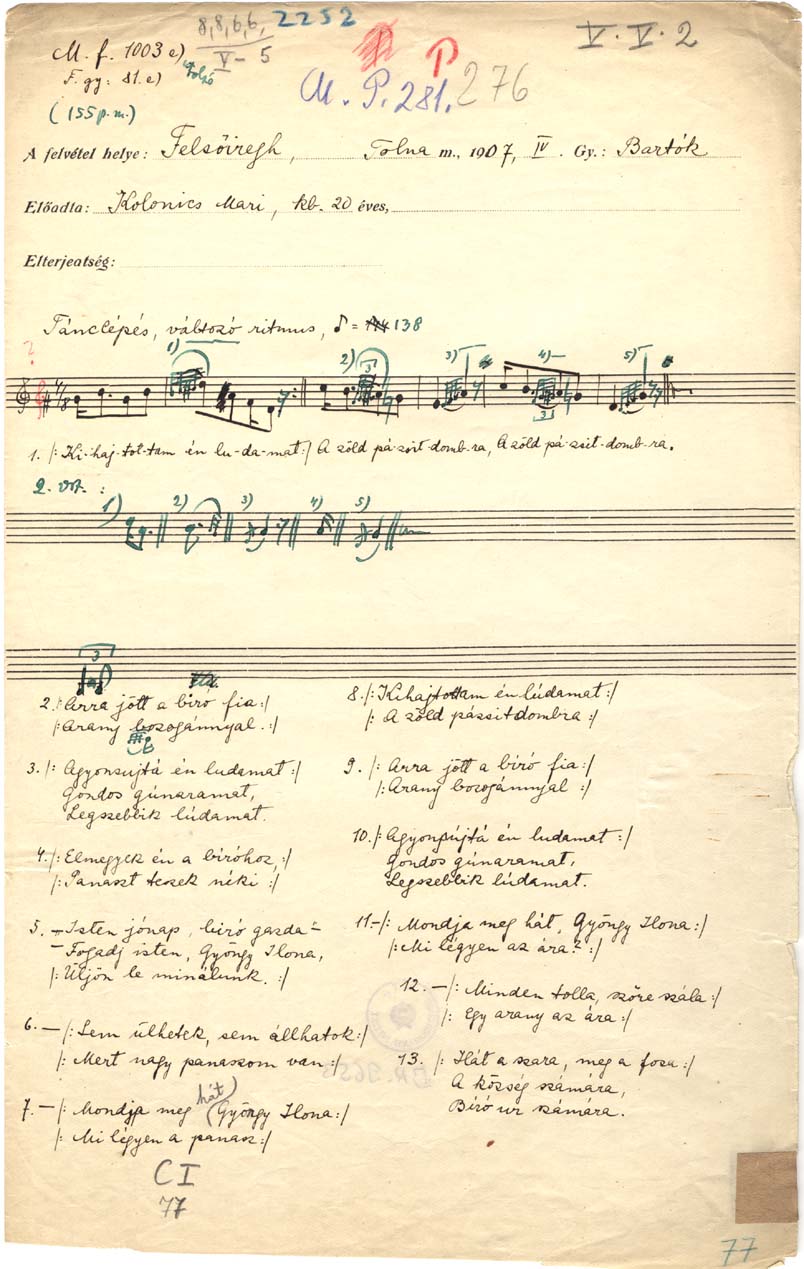 8,8,6,6, 2252
V - 5
V. V. 2
M. f. 1003 e)
F. gy: 81. e)
P
M. P. 281. 276
(155 p. m.)
A felvétel helye: Felsőiregh, Tolna m., 1907, IV. Gy.: Bartók
Előadta: Kolonics Mari, kb. 20 éves,
Elterjedtség:
Tánclépés, változó ritmus, ♪ = 138
?
1) 2) 3) 4) 5)
7/8
1. /: Ki-haj-tot-tam én lu-da-mat :/ A zöld pá-zsit-domb-ra, A zöld pá-zsit-domb-ra.
2. vsz. :
1) 2) 3) 4) 5)
3
2. /: Arra jött a biró fia :/
/: Arany bozogánnyal. :/
3. /: Agyonsujtá én ludamat :/
Gondos gúnaramat,
Legszebbik lúdamat.
4. /: Elmegyek én a biróhoz, :/
/: Panaszt teszek néki :/
5. – Isten jónap, biró gazda –
– Fogadj isten, Gyöngy Ilona,
/: Üljön le minálunk. :/
6. – /: Sem ülhetek, sem állhatok :/
/: Mert nagy panaszom van :/
7. – /: Mondja meg hát Gyöngy Ilona :/
/: Mi légyen a panasz :/
8. /: Kihajtottam én lúdamat :/
/: A zöld pássitdombra :/
9. /: Arra jött a biró fia :/
/: Arany bozogánnyal :/
10. /: Agyonsújtá én ludamat :/
Gondos gúnaramat,
Legszebbik lúdamat.
11. – /: Mondja meg hát, Gyöngy Ilona :/
/: Mi légyen az ára? :/
12. – /: Minden tolla, szőre szála :/
/: Egy arany az ára :/
13. /: Hát a szara, meg a fosa :/
A község számára,
Bíró ur számára.
C I
77
77